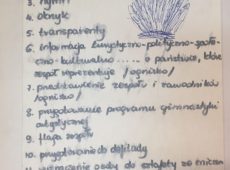 3. hymn
4. okrzyk
5. transparenty
6. informacja turystyczno-polityczno-społe-
czno-kulturalno ...... o państwie, które
zespół reprezentuje /ognisko/
7. przedstawienie zespołu i zawodników
/ognisko/
8. przygotowanie programu gimnastyki
artystycznej
9. flaga zespołu
10. przygotowanie do defilady
11. wyznaczenie osoby do sztafety ze zniczem